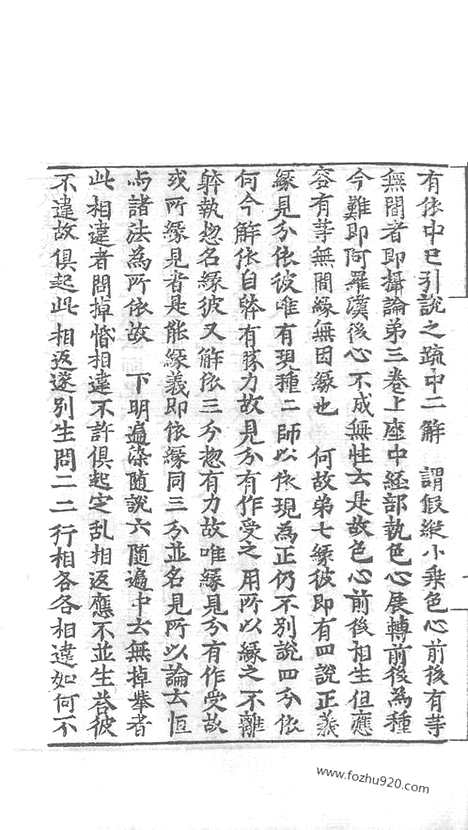 有依中已引說之疏中二解　謂假縱小乘色心前後有等
無間者即攝論弟三卷上座中経部執色心展轉前後為種
今難即阿羅漢後心不成無性云是故色心前後相生但應
容有等無間緣無因緣也　何故弟七緣彼即有四說正義
緣見分依彼唯有現種二師以依現為正仍不別說四分依
何今解依自體有勝力故見分有作受之用所以緣之不離
體執惣名緣彼又解依三分惣有力故唯緣見分有作受故
或所緣見者是能緣義即依緣同三分並名見所以論云恒
与諸法為所依故　下明遍染隨說六隨遍中云無掉舉者
此相違者問掉惛相違不許俱起定乱相返應不並生荅彼
不違故俱起此相返遂別生問二二行相各各相違如何不
www.fozhu920.com